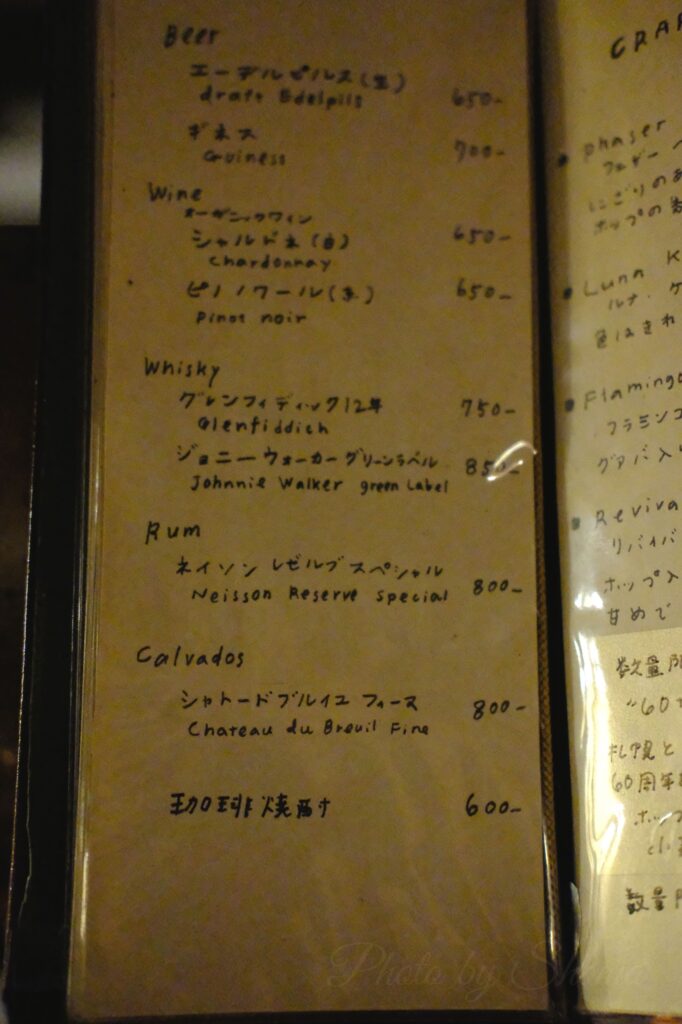 Beer
エーデルピルス(生)
draft Edelpils 650-
ギネス
Guiness 700-
Wine
オーガニックワイン
シャルドネ(白) 650-
Chardonnay
ピノノワール(赤) 650-
Pinot noir
Whisky
グレンフィディック12年 750-
Glenfiddich
ジョニーウォーカーグリーンラベル 850-
Johnnie Walker green Label
Rum
ネイソン レゼルブ スペシャル
Neisson Reserve Special 800-
Calvados
シャトードブルイユ フィーヌ 800-
Chateau du Breuil Fine
珈琲焼酎 600-
CRAF
phaser
フェザー
にごりのあ
ホップの
Luna K
ルナ・ケ
色はきれ
Flamingo
フラミンゴ
グアバ入り
Reviva
リバイバ
ホップ入
甘めで
数量限
"60
札幌と
60周年
ホップ
数量限
Photo by